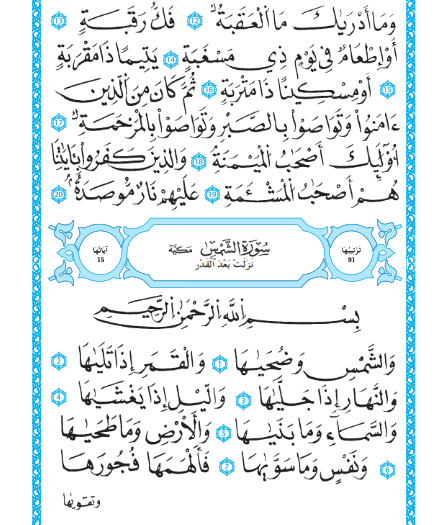 وَمَا أَدْرَيٰكَ مَا ٱلْعَقَبَةُ ۝12 فَكُّ رَقَبَةٍ ۝13
أَوْ إِطْعَامٌ فِي يَوْمٍ ذِي مَسْغَبَةٍ ۝14 يَتِيمًا ذَا مَقْرَبَةٍ
۝15 أَوْ مِسْكِينًا ذَا مَتْرَبَةٍ ۝16 ثُمَّ كَانَ مِنَ ٱلَّذِينَ
ءَامَنُوا وَتَوَاصَوْا بِالصَّبْرِ وَتَوَاصَوْا بِالْمَرْحَمَةِ ۝17
أُو۟لَٰٓئِكَ أَصْحَٰبُ ٱلْمَيْمَنَةِ ۝18 وَٱلَّذِينَ كَفَرُوا بِـَٔايَٰتِنَا
هُمْ أَصْحَٰبُ ٱلْمَشْـَٔمَةِ ۝19 عَلَيْهِمْ نَارٌ مُّوصَدَةٌ ۝20
تَرتيبُها 91 سُورَةُ الشَّمْسِ مَكيّة آياتُها 15
نَزلَتْ بَعْدَ القَدْر
بِسْمِ ٱللَّهِ ٱلرَّحْمَٰنِ ٱلرَّحِيمِ
وَالشَّمْسِ وَضُحَيٰهَا ۝1 وَالْقَمَرِ إِذَا تَلَيٰهَا ۝2
وَالنَّهَارِ إِذَا جَلَّيٰهَا ۝3 وَالَّيْلِ إِذَا يَغْشَيٰهَا ۝4
وَالسَّمَاءِ وَمَا بَنَيٰهَا ۝5 وَالْأَرْضِ وَمَا طَحَيٰهَا
۝6 وَنَفْسٍ وَمَا سَوَّيٰهَا ۝7 فَأَلْهَمَهَا فُجُورَهَا
وتقويها